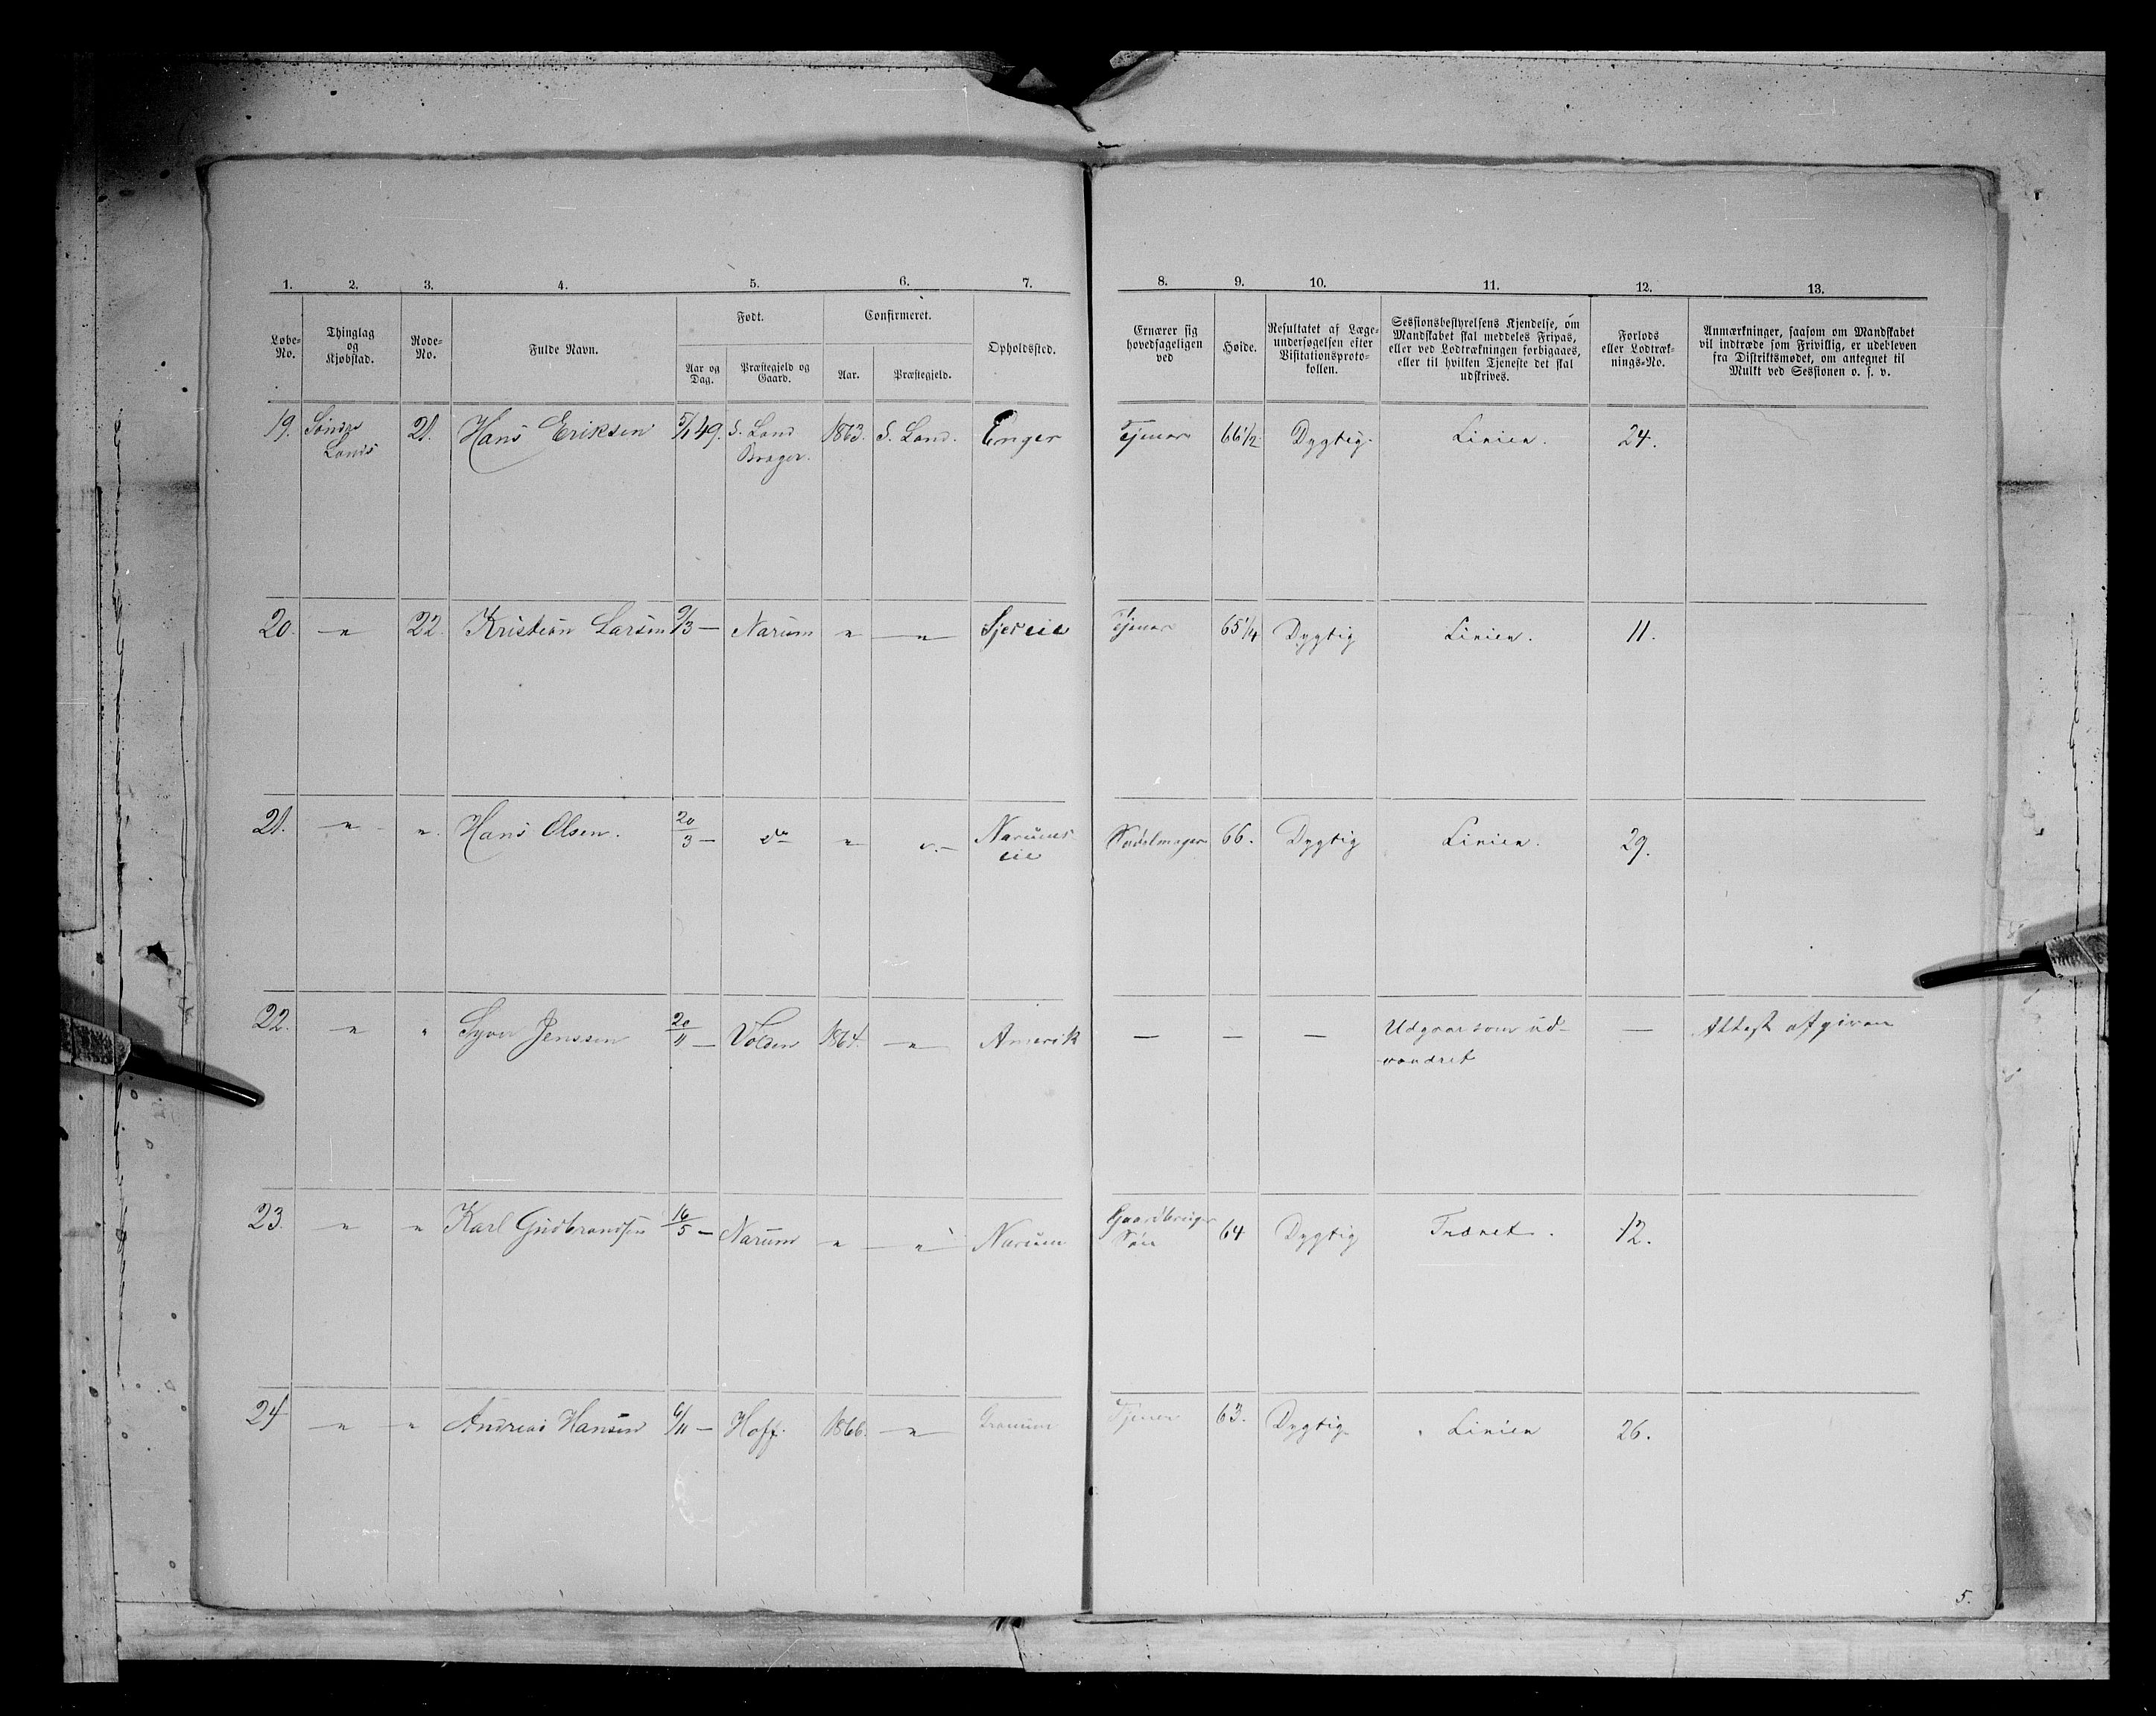 1. 2. 3. 4. 5. 6. 7. 8. 9. 10. 11. 12. 13.
Løbe-No.
Thinglag og Kjøbstad.
Rode-No.
Fulde Navn.
Født.
Aar og Dag.
Præstegjeld og Gaard.
Confirmeret.
Aar.
Præstegjeld.
Opholdssted.
Ernærer sig hovedsageligen ved
Høide.
Resultatet af Læge-
undersøgelsen efter
Visitationsproto-
kollen.
Sessionsbestyrelsens Kjendelse, om
Mandskabet skal meddeles Fripas,
eller ved Lodtrækningen forbigaaes,
eller til hvilken Tjeneste det skal
udskrives.
Forlods
eller Lodtræk-
nings-No.
Anmærkninger, saasom om Mandskabet
vil indtræde som Frivillig, er udebleven
fra Distriktsmødet, om antegnet til
Mulkt ved Sessionen o. s. v.
19. Søndre 21. Hans Eriksen 5/1 49. S. Land 1863. S. Land. Enger Tjener 66 1/2 Dygtig. Linien. 24.
Lands Brager.
20. — " 22. Kristian Larsen 9/3 — Narum " — " Tjener 65 1/4 Dygtig Linien. 11.
21. — " — ". Hans Olsen. 20/3 — do " — " Narums- Sadelmager 66. Dygtig Linien. 29.
eie
22. — " " Syver Jenssen 20/11 — Volden 1864. — " Amerik — — — Udgaar som ud- — Attest afgiven
vandret
23. — " " Karl Gudbrandsen 16/5 — Narum " — " Narum Gaardbruger 64 Dygtig Trænet. 12.
Søn
24 — " " Andreas Hansen 6/11 — Hoff. 1866. — " Granum Tjener 63. Dygtig Linien 26.
5.